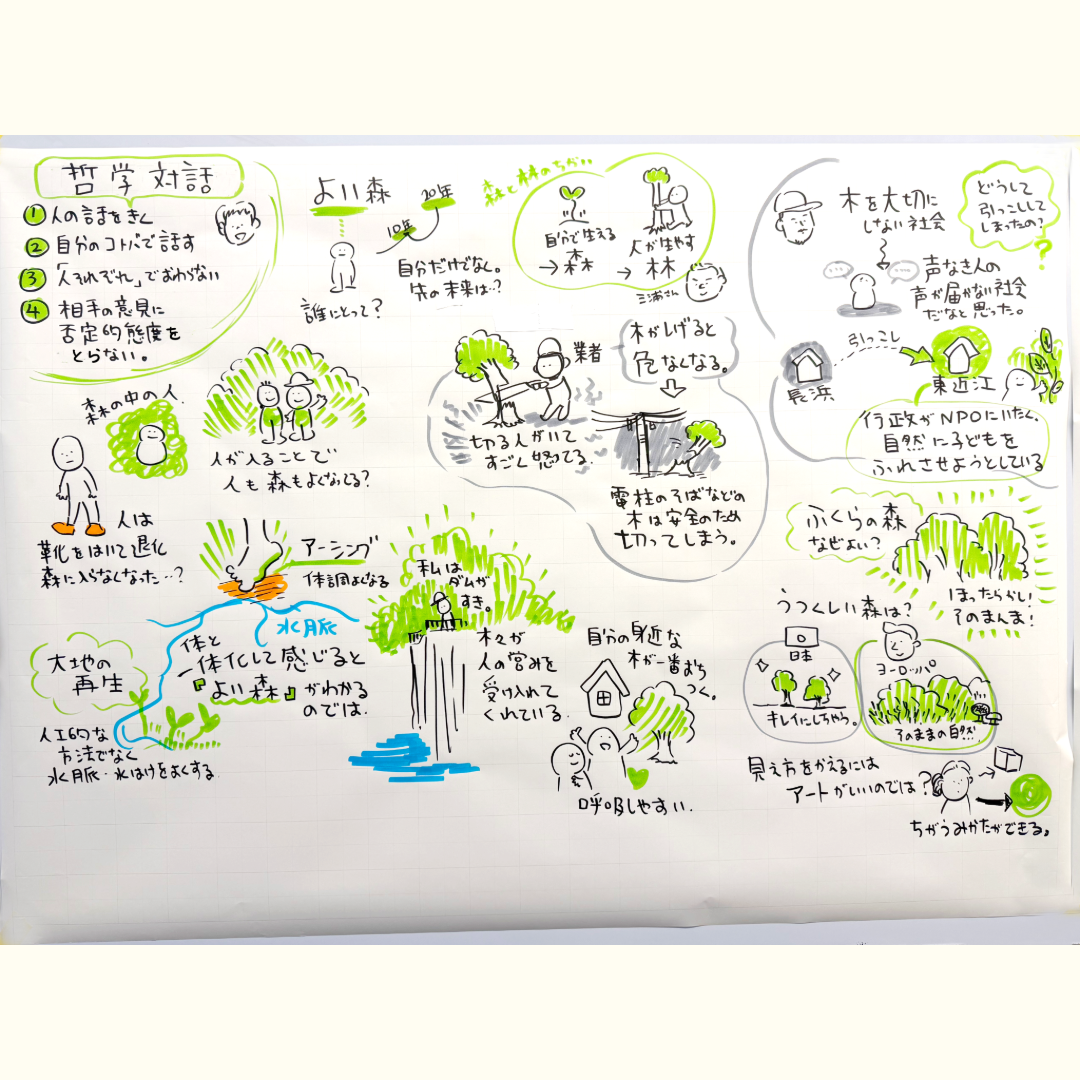 哲学対話
① 人の話をきく
② 自分のコトバで話す
③ 「人それぞれ」でおわらない
④ 相手の意見に
否定的態度を
とらない。
よい森
誰にとって?
10年
20年
自分だけでなく。
先の未来は…?
森と林のちがい
自分で生える
→森
人が生やす
→林
三浦さん
木を大切に
しない社会
どうして
引っこしして
しまったの?
?
声なき人の
声が届かない社会
だなと思った。
長浜
引っこし
東近江
行政がNPOにいたく、
自然に子どもを
ふれさせようとしている
森の中の人
人が入ることで
人も森もよくなってる?
人は
靴をはいて退化
森に入らなくなった…?
業者
木がしげると
危なくなる。
切る人がいて
すごく怒てる。
電柱のそばなどの
木は安全のため
切ってしまう。
アーシング
体調よくなる
水脈
大地の
再生
人工的な
方法でなく
水脈・水はけをよくする
体と
一体化して感じると
『よい森』がわかる
のでは。
私は
ダムが
すき。
木々が
人の営みを
受け入れて
くれている。
自分の身近な
木が一番おち
つく。
呼吸しやすい。
ふくらの森
なぜよい?
ほったらかし!
そのまんま!
うつくしい森は?
日本
キレイにしちゃう。
ヨーロッパ
そのままの自然
見え方をかえるには
アートがいいのでは?
ちがうみかたができる。